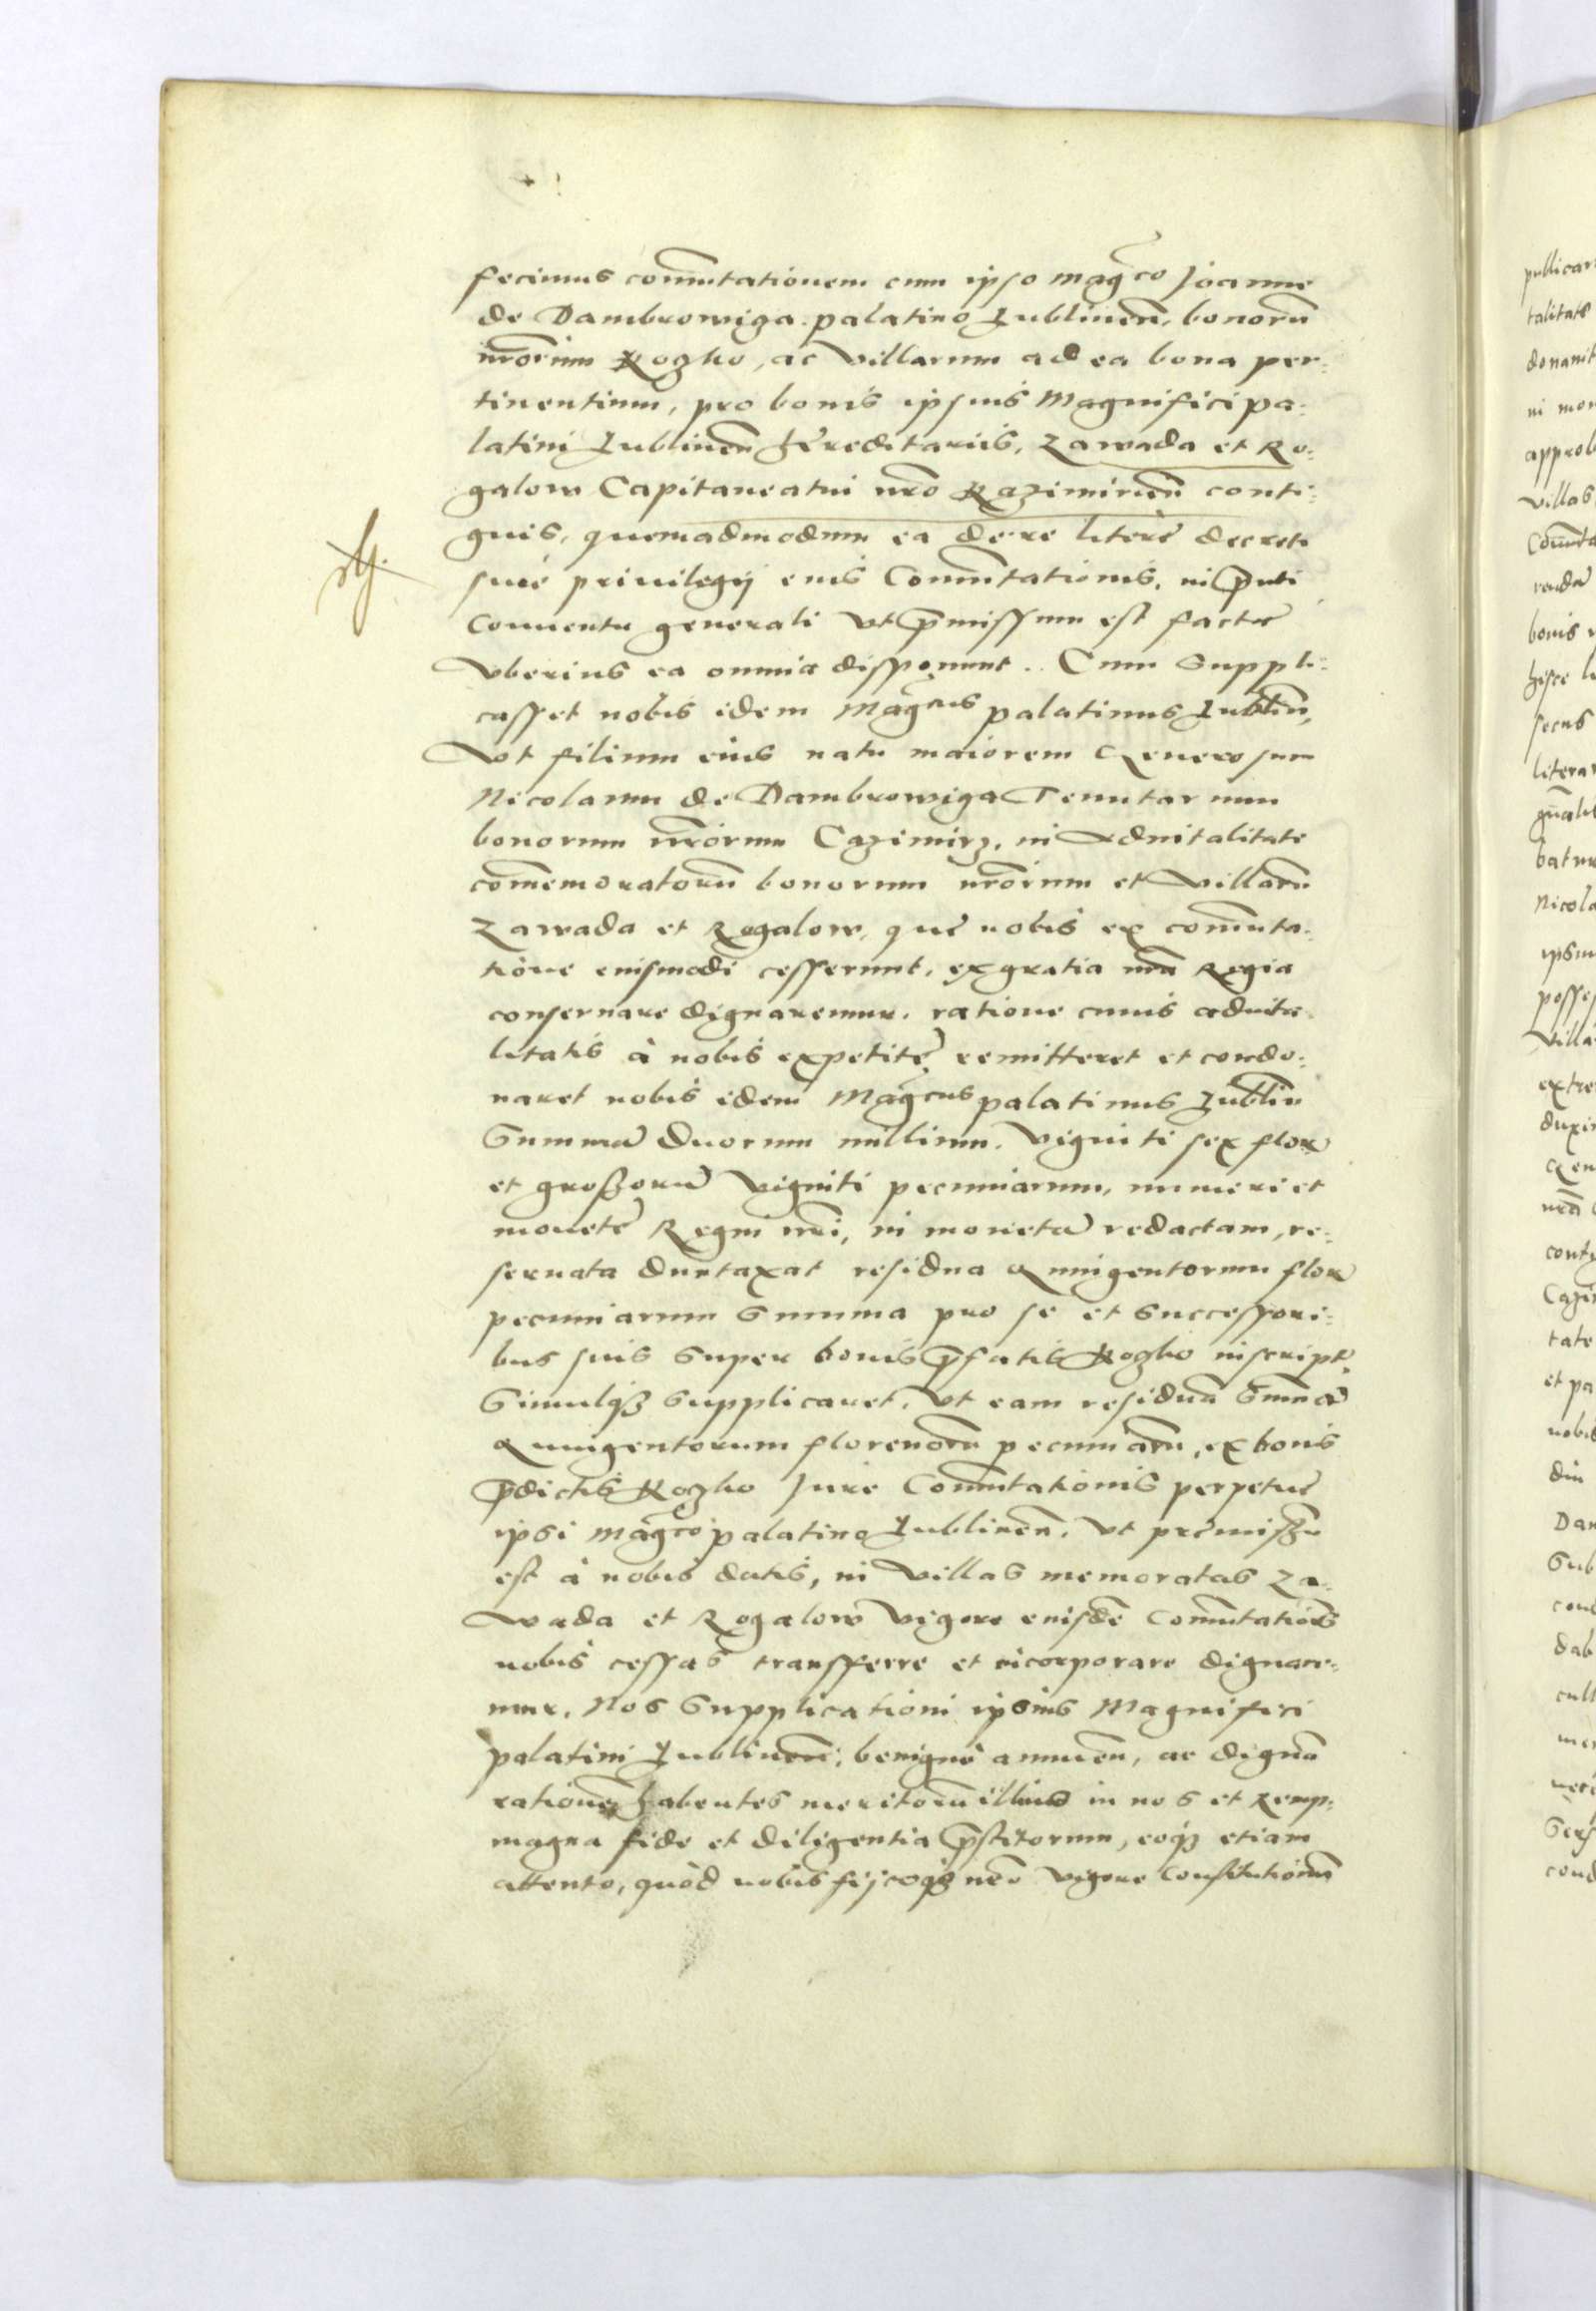 fecimus com̄utationem cum ipso mag̃co Joanne
de Dambrowiga palatino Lublinen̄, bonorū
nr̄orum Kozko, ac villarum ad ea bona per:
tinentium, pro bonis ipsius Magnifici pa:
latini Lublinen̄ hęreditariis, Zawada et Ro:
galow Capitaneatui nr̄o Kazimirien̄ conti:
guis, quemadmodum ea de re literę decreti
siue priuilegij eius Com̄utationis, in p̄nti
Conuentu generali vt p̄missum est factę
vberius ea omnia disponunt. Cum suppli:
casset nobis idem Mag̃cus palatinus Lublin̄,
Vt filium eius natu maiorem Generosum
Nicolaum de Dambrowiga Tenutarium
bonorum nr̄orum Cazimirz, in aduitalitate
com̄emoratorū bonorum nr̄orum et villarū
Zawada et Rogalow, quę nobis ex com̄uta:
tione eiusmodi cesserunt, ex gratia nr̄a Regia
conseruare dignaremur. ratione cuius aduita:
litatis à nobis expetitę remitteret et condo:
naret nobis idem Mag̃cus palatinus Lublin̄
Summā duorum millium. viginti sex flor
et grossorū viginti pecuniarum, numeri et
monetę Regni nr̄i, in monetā redactam, re:
seruata duntaxat residua Quingentorum flor
pecuniarum summa pro se et successori:
bus suis super bonis p̄fatis Kozko inscript.
Simulq3 supplicaret, vt eam residuā sum̄ā
Quingentorum florenorū pecuniarū, ex bonis
p̄dictis Kozko Jure Com̄utationis perpetuę
ipsi mag̃co palatino Lublinen̄. vt pręmissū
est à nobis datis, in villas memoratas Za:
wada et Rogalow vigore eiusdē Com̄utationis
nobis cessas transfferre et incorporare dignare:
mur. Nos supplicationi ipsius Magnifici
palatini Lublinen̄, benignè annuen̄, ac dignā
rationē habentes meritorū illius in nos et Remp:
magna fide et diligentia p̄stitorum, eoq3 etiam
attento, quòd nobis fiscoq3 nr̄o vigore Constitutionum